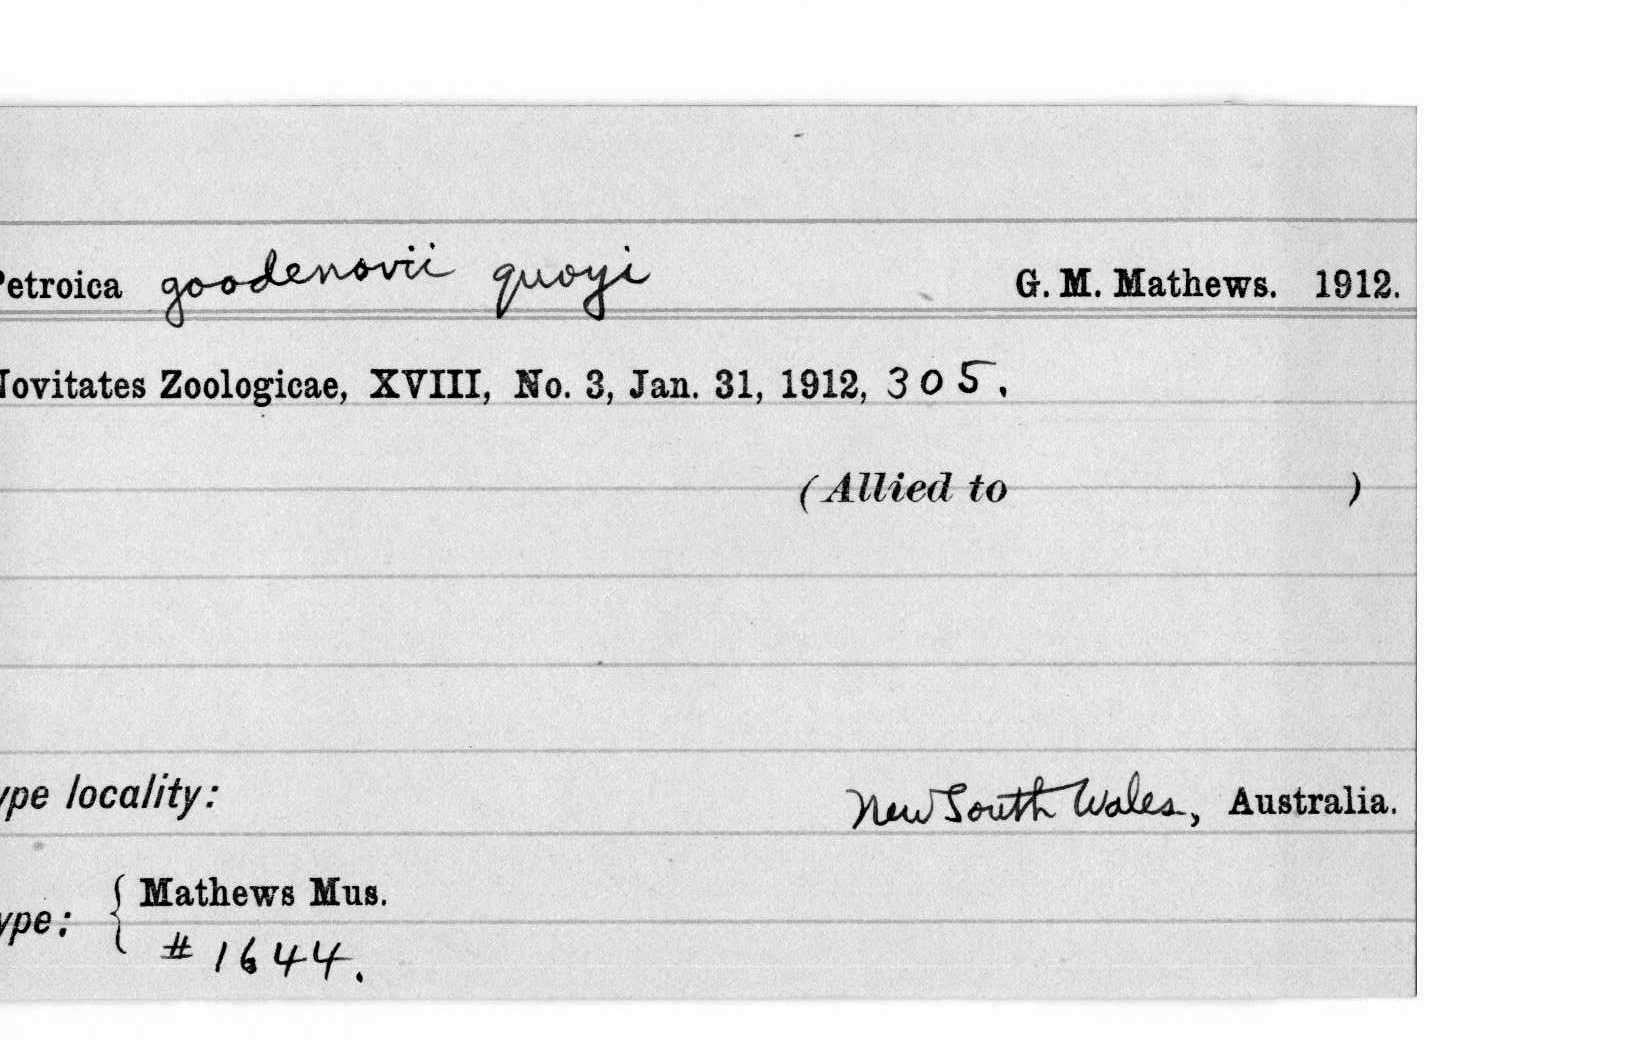 Petroica goodenovii quoyi G. M. Mathews. 1912.
Novitates Zoologicae, XVIII, No. 3, Jan. 31, 1912, 305.
(Allied to )
ype locality: New South Wales, Australia.
ype: { Mathews Mus.
# 1644.